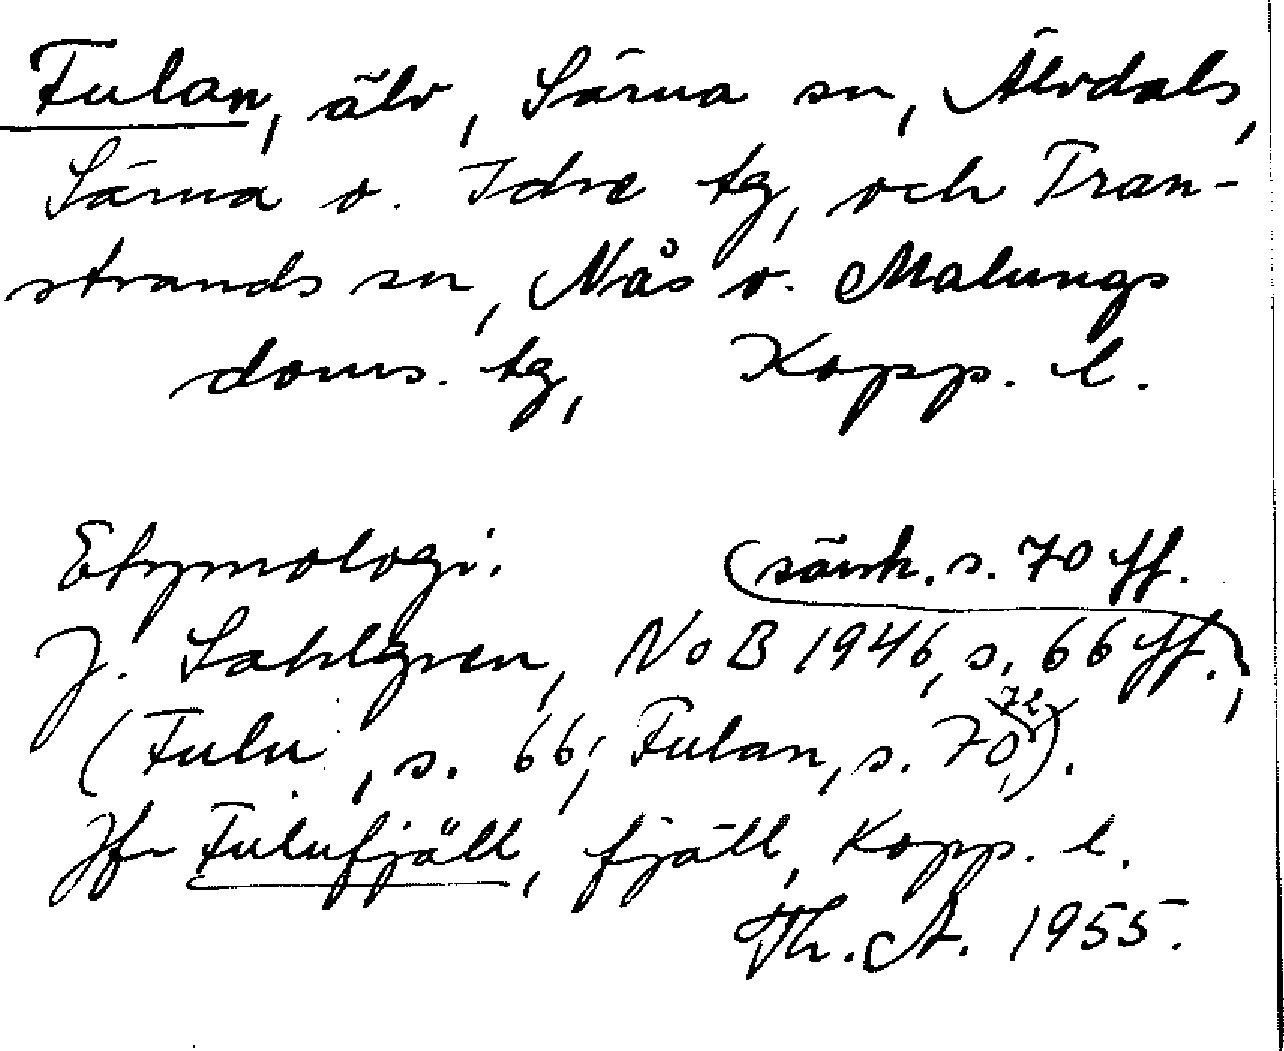 Fulan, älv, Särna sn, Älvdals,
Särna o. Idre tg, och Tran-
strands sn, Nås o. Malungs
doms. tg, Kopp. l.
Etymologi. (särsk. s. 70 ff.
J. Sahlgren, NoB 1946, s. 66 ff.),
(Fulu, s. 66; Fulan, s. 70, 72).
Jfr Fulufjäll, fjäll, Kopp. l.
Th. A. 1955.